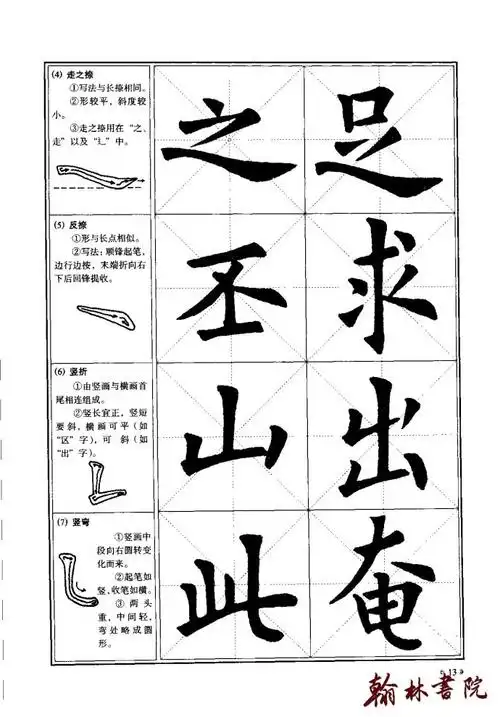 (4) 走之捺
①写法与长捺相同。
②形较平，斜度较
小。
③走之捺用在“之、
走”以及“辶”中。
之足
(5) 反捺
①形与长点相似。
②写法：顺锋起笔，
边行边按，末端折向右
下后回锋提收。
丕求
(6) 竖折
①由竖画与横画首
尾相连组成。
②竖长宜正，竖短
要斜，横画可平（如
“区”字），可斜（如
“出”字）。
山出
(7) 竖弯
①竖画中
段向右圆转变
化而来。
②起笔如
竖，收笔如横。
③两头
重，中间轻，
弯处略成圆
形。
此奄
13
翰林書院